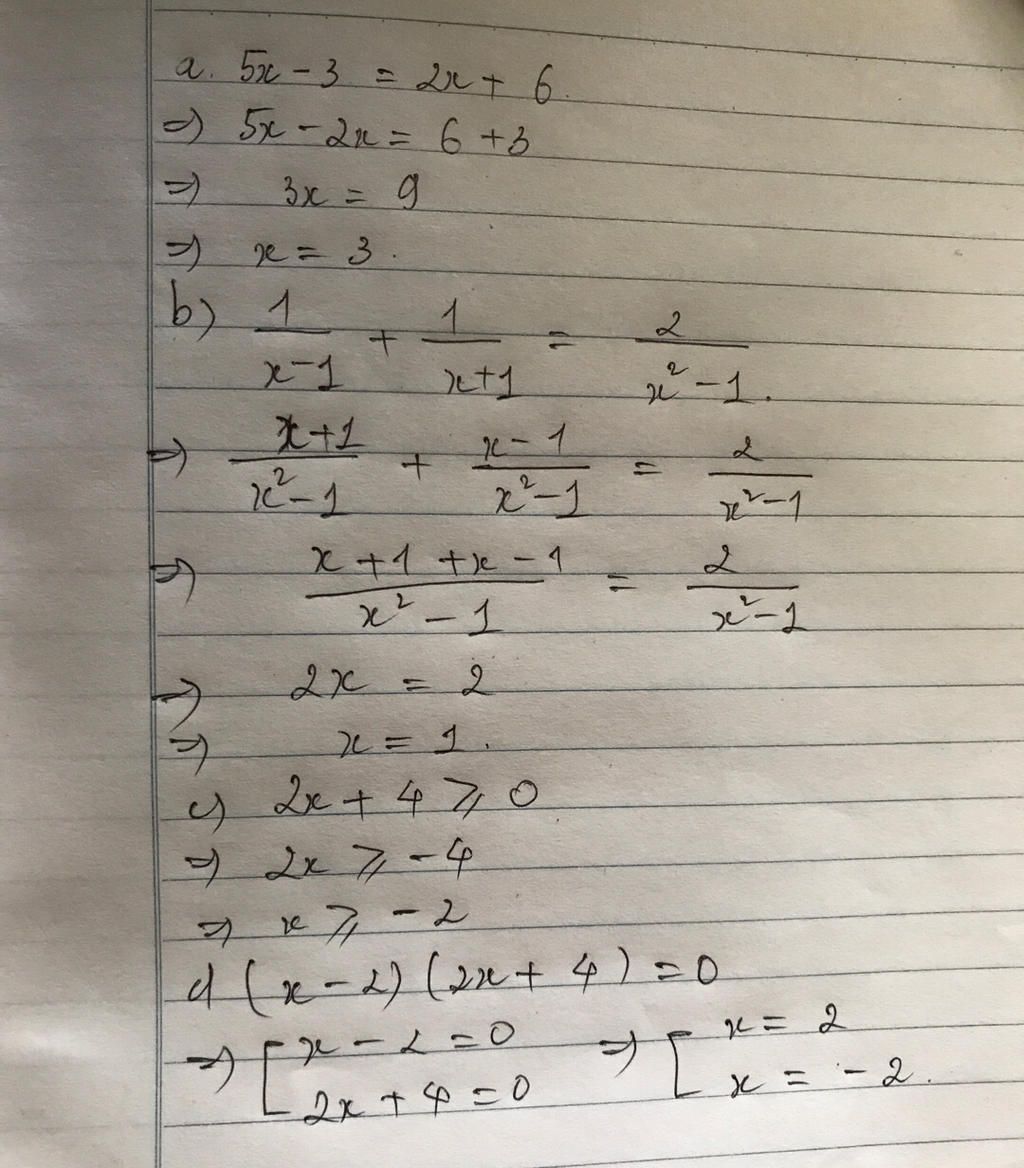 a. 5x - 3 = 2x + 6.
=> 5x - 2x = 6 + 3
=> 3x = 9
=> x = 3.
b) 1/(x-1) + 1/(x+1) = 2/(x²-1).
=> (x+1)/(x²-1) + (x-1)/(x²-1) = 2/(x²-1)
=> (x+1+x-1)/(x²-1) = 2/(x²-1)
=> 2x = 2
=> x = 1.
c) 2x + 4 ⩾ 0
=> 2x ⩾ -4
=> x ⩾ -2
d (x-2)(2x+4) = 0
=> [ x - 2 = 0 => [ x = 2
2x + 4 = 0 x = -2.